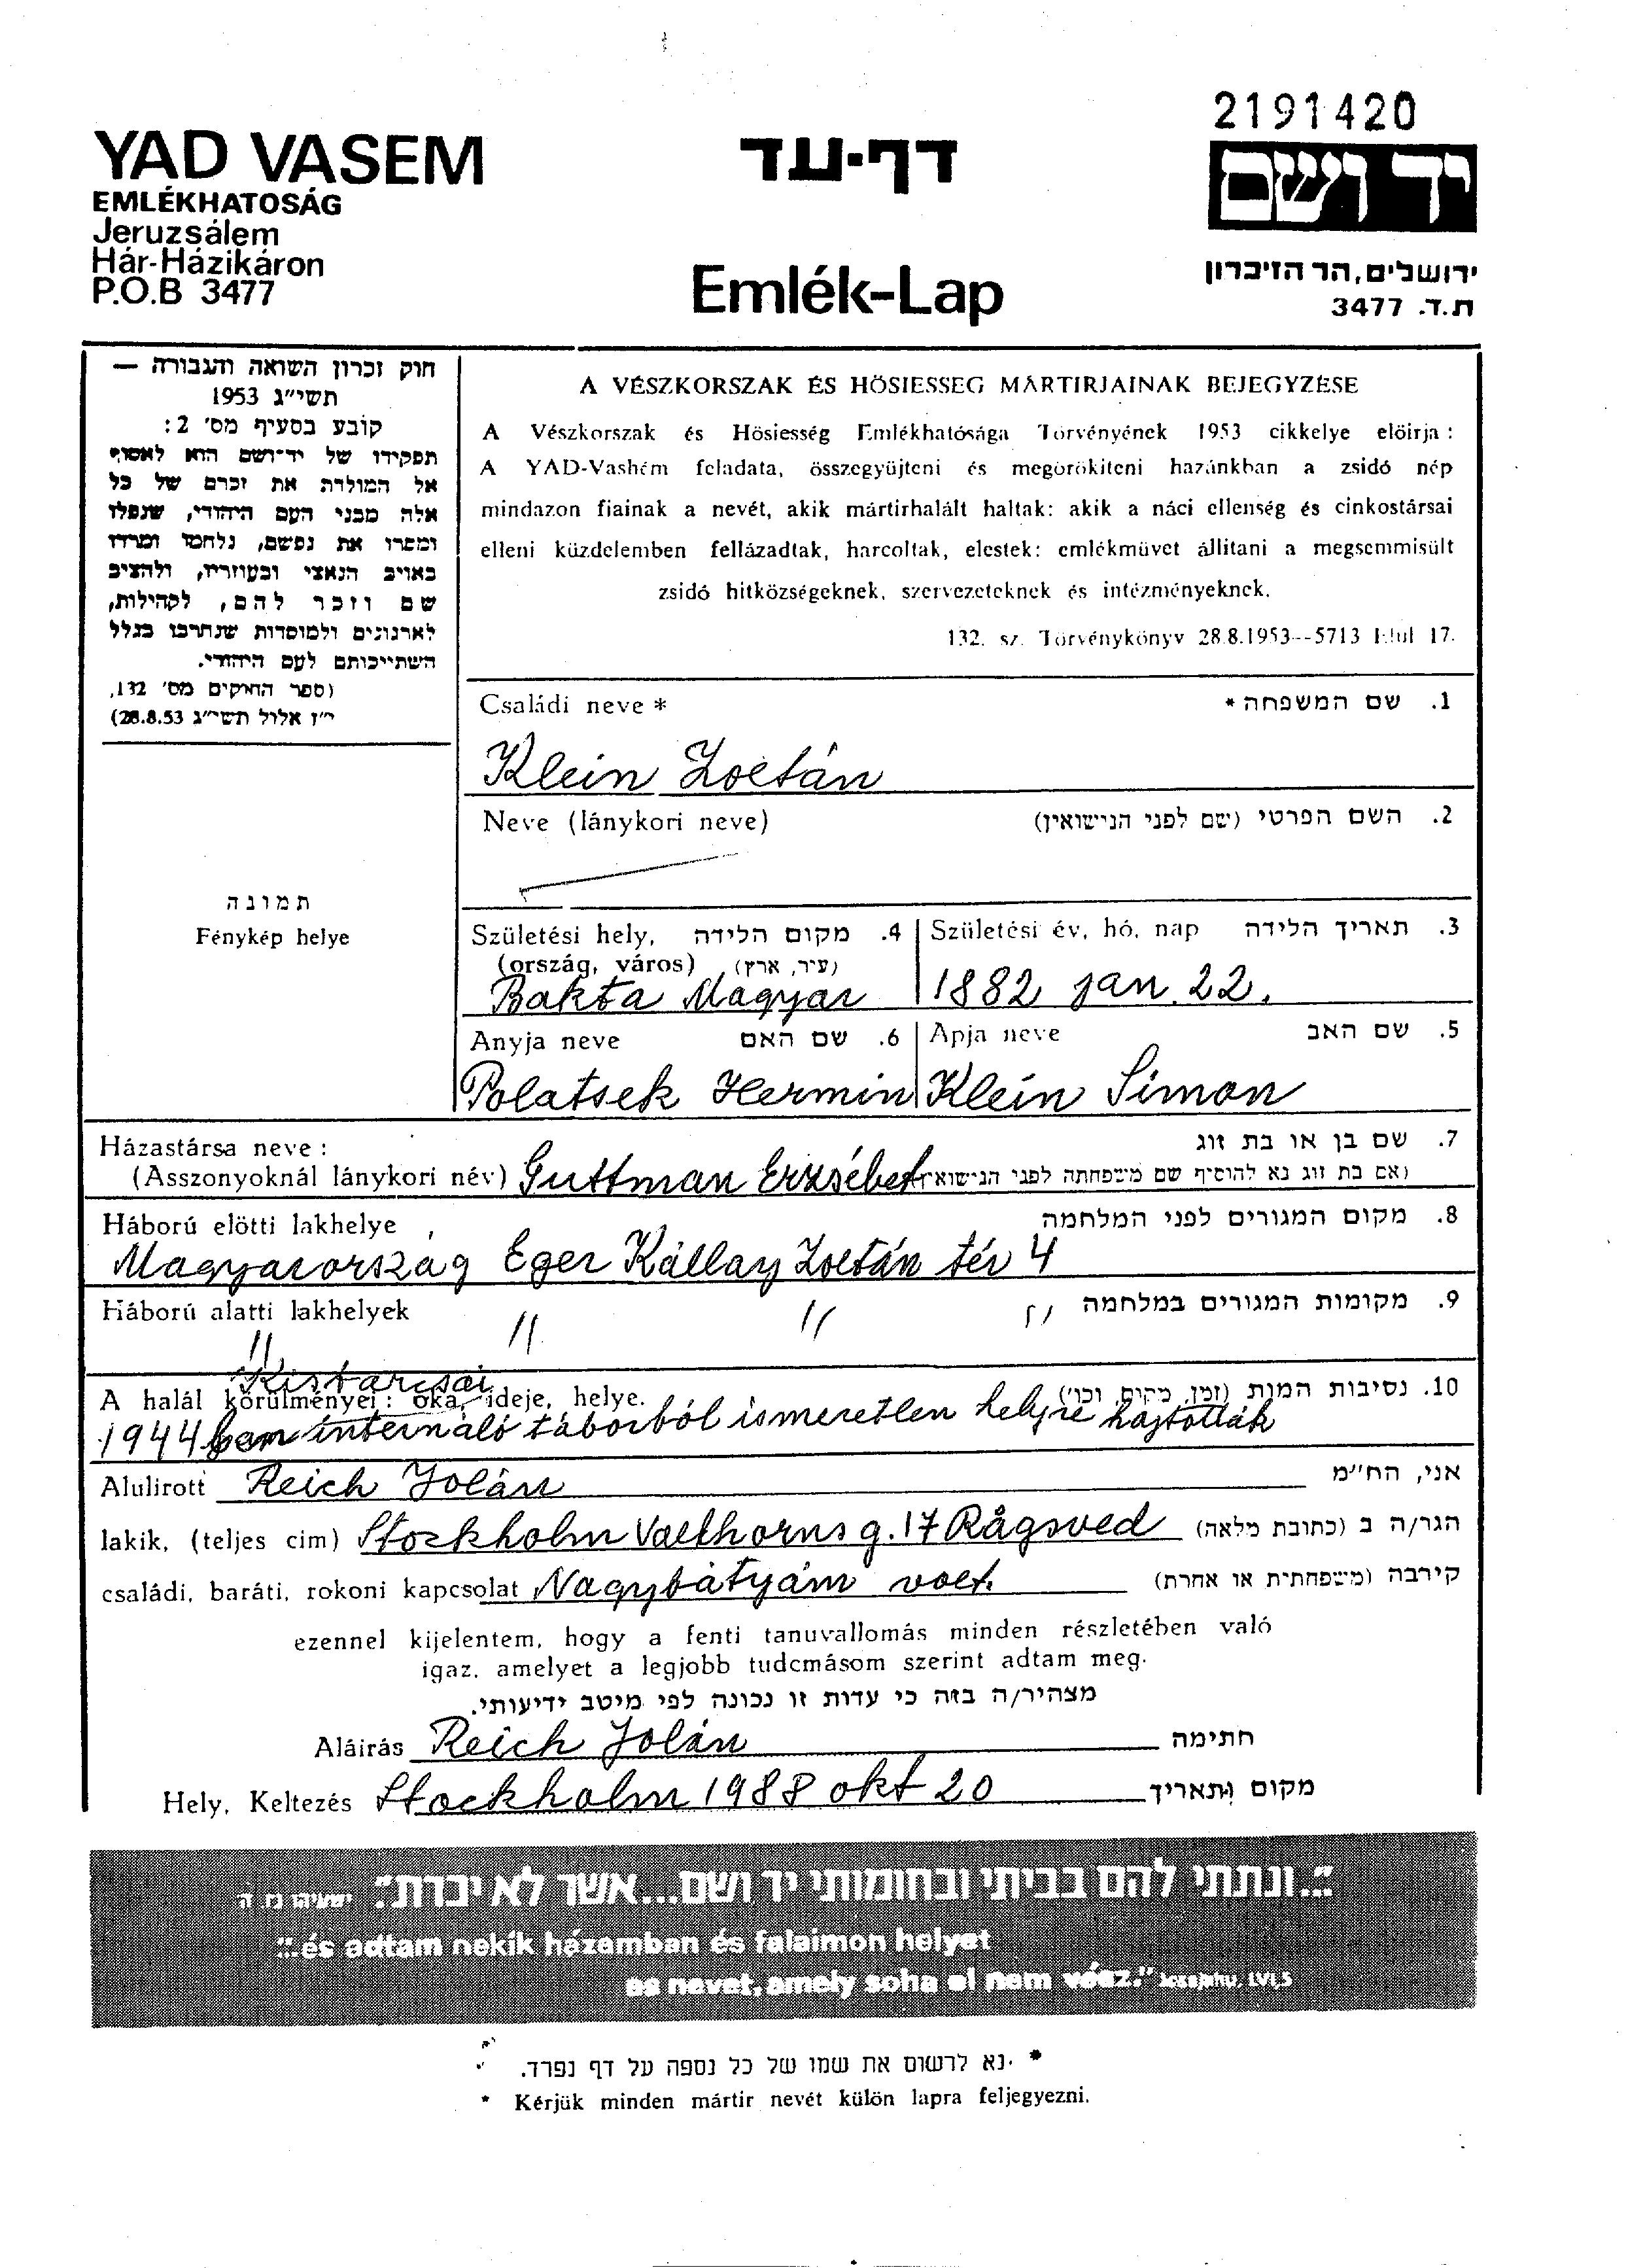 2191420
YAD VASEM
EMLÉKHATOSÁG
Jeruzsálem
Hár-Házikáron
P.O.B 3477
דף-עד
Emlék-Lap
יד ושם
ירושלים, הר הזיכרון
ת.ד. 3477
חוק זכרון השואה והגבורה —
תשי״ג 1953
קובע בסעיף מס׳ 2:
תפקידו של יד־ושם הוא לאסוף
אל המולדת את זכרם של כל
אלה מבני העם היהודי, שנפלו
ומסרו את נפשם, נלחמו ומרדו
באויב הנאצי ובעוזריו, ולהציב
שם וזכר להם, לקהילות,
לארגונים ולמוסדות שנחרבו בגלל
השתייכותם לעם היהודי.
(ספר החוקים מס׳ 132,
י״ז אלול תשי״ג 28.8.53)
תמונה
Fénykép helye
A VÉSZKORSZAK ÉS HÖSIESSEG MÁRTIRJAINAK BEJEGYZÉSE
A Vészkorszak és Hösiesség Emlékhatósága Törvényének 1953 cikkelye elöirja :
A YAD-Vashém feladata, összegyüjteni és megörökiteni hazánkban a zsidó nép
mindazon fiainak a nevét, akik mártirhalált haltak: akik a náci ellenség és cinkostársai
elleni küzdelemben fellázadtak, harcoltak, elestek: emlékmüvet állitani a megsemmisült
zsidó hitközségeknek, szervezeteknek és intézményeknek.
132. sz. Törvénykönyv 28.8.1953--5713 Elul 17.
Családi neve * 1. שם המשפחה *
Klein Zoltán
Neve (lánykori neve) 2. השם הפרטי (שם לפני הנישואין)
Születési hely, 4. מקום הלידה Születési év, hó, nap 3. תאריך הלידה
(ország, város) (עיר, ארץ)
Bakta Magyar 1882 jan. 22.
Anyja neve 6. שם האם Apja neve 5. שם האב
Polatsek Hermin Klein Simon
Házastársa neve : 7. שם בן או בת זוג
(Asszonyoknál lánykori név) Guttman Erzsébet (אם בת זוג נא להוסיף שם משפחתה לפני הנישואין
Háború elötti lakhelye 8. מקום המגורים לפני המלחמה
Magyarország Eger Kállay Zoltán tér 4
Háború alatti lakhelyek 9. מקומות המגורים במלחמה
// // // //
Kistarcsai
A halál körülményei : oka, ideje, helye. 10. נסיבות המות (זמן, מקום, וכו׳)
1944 ben internáló táborból ismeretlen helyre hajtották
Alulirott Reich Jolán אני, הח״מ
lakik, (teljes cim) Stockholm Valthorns g. 17 Rågsved הגר/ה ב (כתובת מלאה)
családi, baráti, rokoni kapcsolat Nagybátyám volt. קירבה (משפחתית או אחרת)
ezennel kijelentem, hogy a fenti tanuvallomás minden részletében való
igaz, amelyet a legjobb tudcmásom szerint adtam meg.
מצהיר/ה בזה כי עדות זו נכונה לפי מיטב ידיעותי.
Aláirás Reich Jolán חתימה
Hely, Keltezés Stockholm 1988 okt 20 מקום ותאריך
"...ונתתי להם בביתי ובחומותי יד ושם...אשר לא יכרת". ישעיהו נו, ה
"...és adtam nekik házamban és falaimon helyet
es nevet, amely soha el nem vész." Jesajahu, LVI,5
* נא לרשום את שמו של כל נספה על דף נפרד.
* Kérjük minden mártir nevét külön lapra feljegyezni.